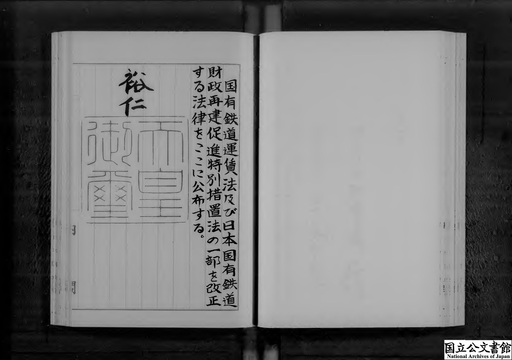 国有鉄道運賃法及び日本国有鉄道
財政再建促進特別措置法の一部を改正
する法律をここに公布する。
裕仁
天皇
御璽
国立公文書館
National Archives of Japan